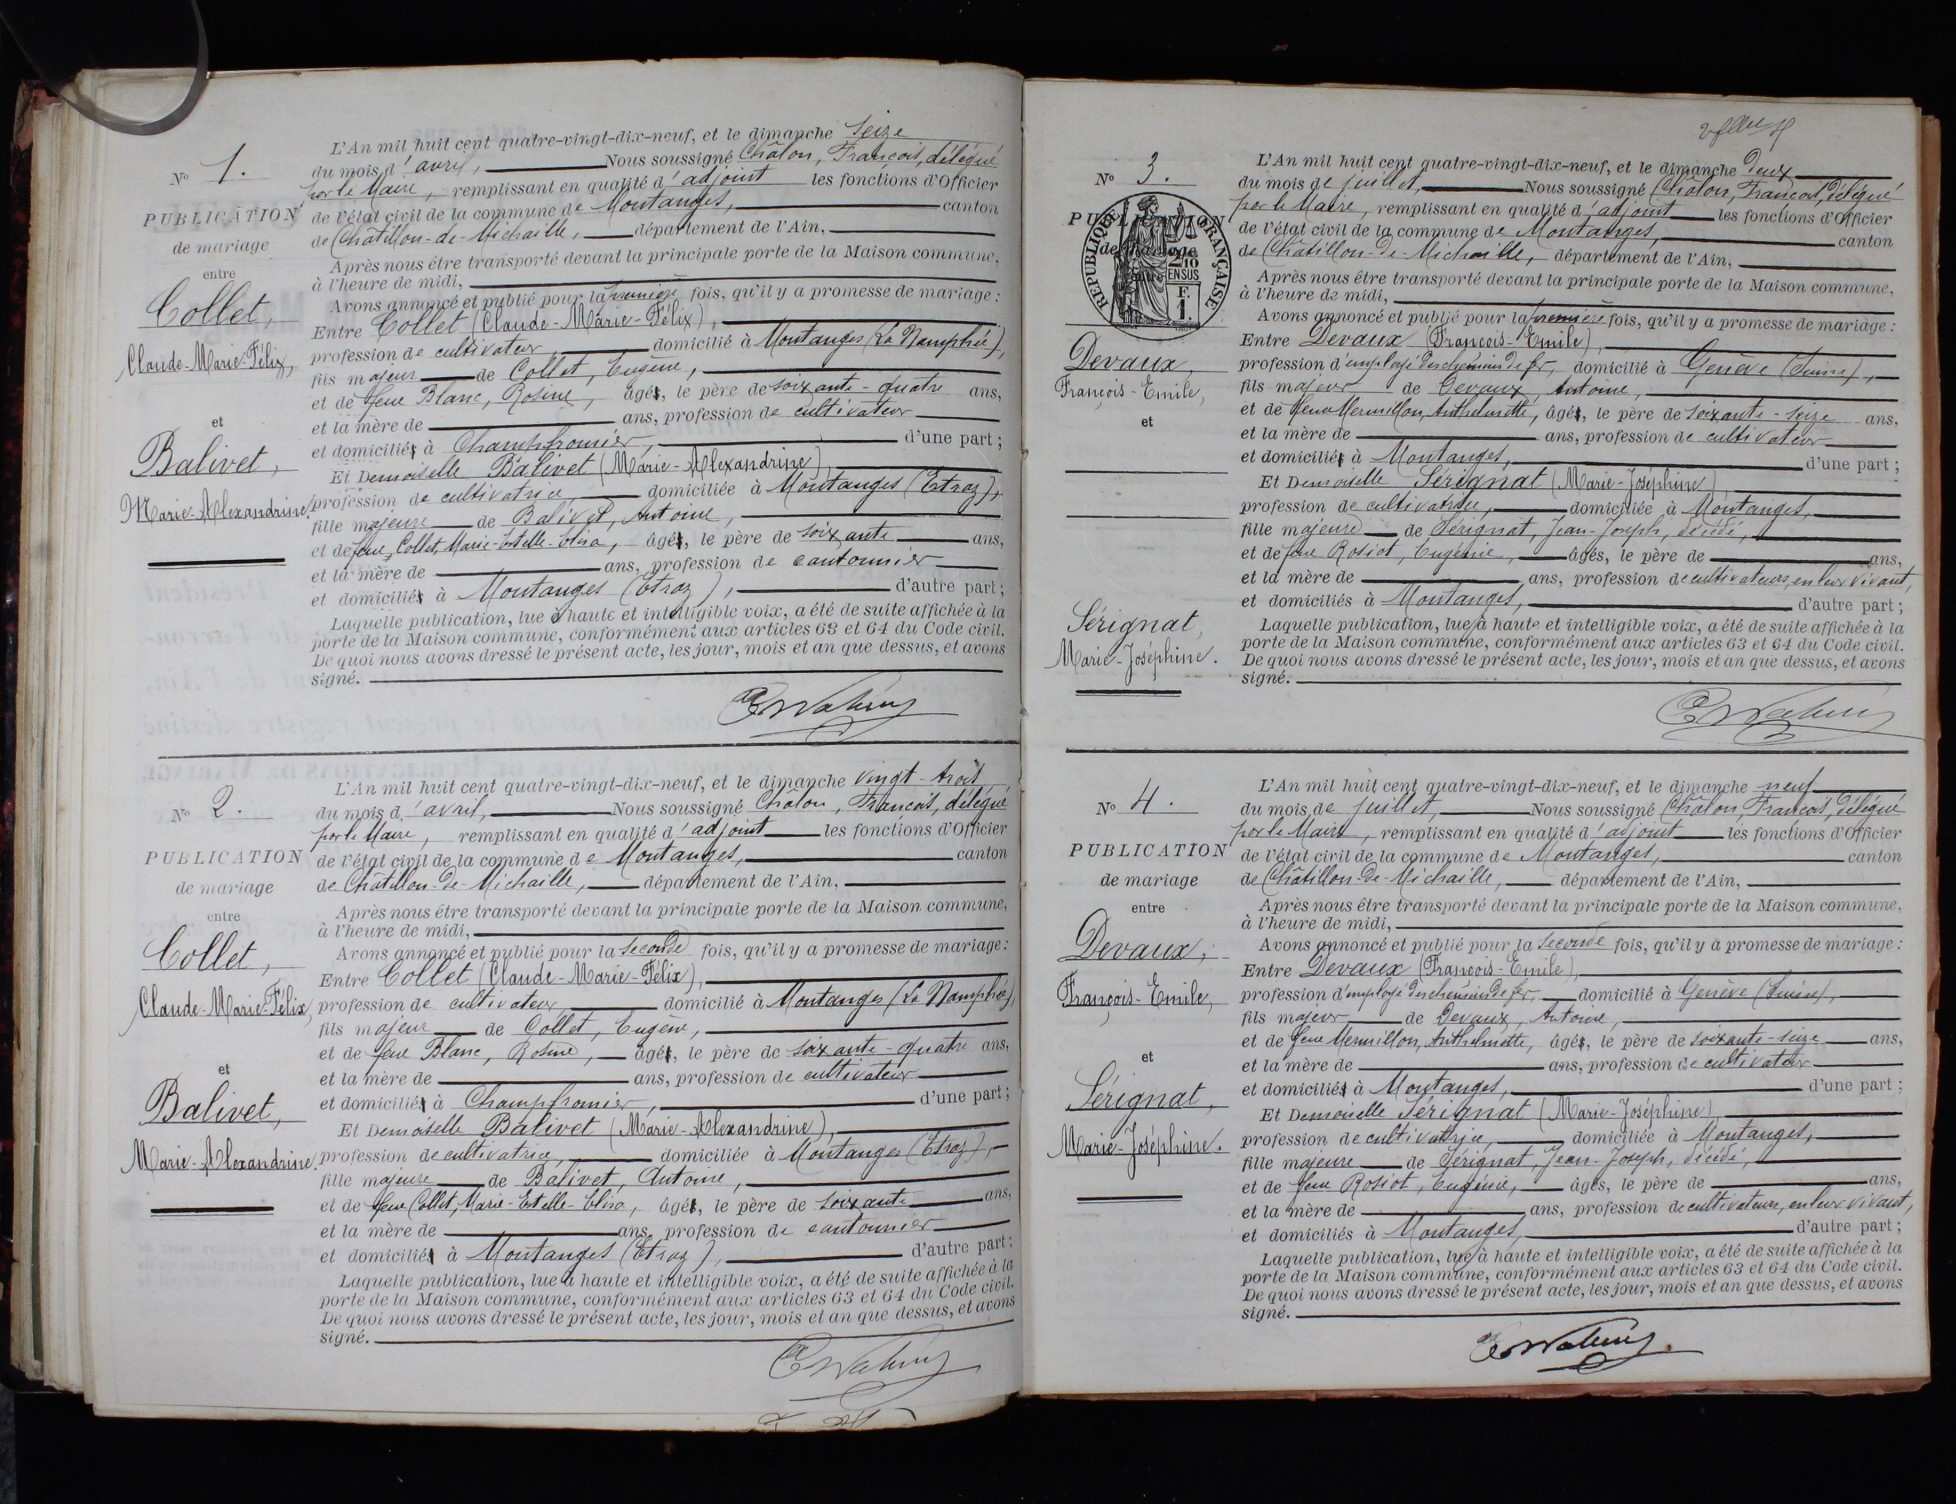 N° 1.
PUBLICATION
de mariage
entre
Collet,
Claude-Marie-Félix,
et
Balivet,
Marie-Alexandrine.
L'An mil huit cent quatre-vingt-dix-neuf, et le dimanche seize
du mois d'avril, Nous soussigné Châlon, François, délégué
par le Maire, remplissant en qualité d'adjoint les fonctions d'Officier
de l'état civil de la commune de Montanges, canton
de Châtillon-de-Michaille, département de l'Ain,
Après nous être transporté devant la principale porte de la Maison commune,
à l'heure de midi,
Avons annoncé et publié pour la première fois, qu'il y a promesse de mariage :
Entre Collet (Claude-Marie-Félix),
profession de cultivateur domicilié à Montanges (La Namphée),
fils majeur de Collet, Eugène,
et de feue Blanc, Rosine, âgé, le père de soixante-quatre ans,
et la mère de ans, profession de cultivateur
et domicilié à Champfromier, d'une part ;
Et Demoiselle Balivet (Marie-Alexandrine),
profession de cultivatrice, domiciliée à Montanges (Etraz),
fille majeure de Balivet, Antoine,
et de feue Collet, Marie-Estelle-Elisa, âgé, le père de soixante ans,
et la mère de ans, profession de cantonnier
et domicilié à Montanges (Etraz), d'autre part ;
Laquelle publication, lue à haute et intelligible voix, a été de suite affichée à la
porte de la Maison commune, conformément aux articles 63 et 64 du Code civil.
De quoi nous avons dressé le présent acte, les jour, mois et an que dessus, et avons
signé.
N° 2.
PUBLICATION
de mariage
entre
Collet,
Claude-Marie-Félix,
et
Balivet,
Marie-Alexandrine.
L'An mil huit cent quatre-vingt-dix-neuf, et le dimanche vingt-trois
du mois d'avril, Nous soussigné Châlon, François, délégué
par le Maire, remplissant en qualité d'adjoint les fonctions d'Officier
de l'état civil de la commune de Montanges, canton
de Châtillon-de-Michaille, département de l'Ain,
Après nous être transporté devant la principale porte de la Maison commune,
à l'heure de midi,
Avons annoncé et publié pour la seconde fois, qu'il y a promesse de mariage :
Entre Collet (Claude-Marie-Félix),
profession de cultivateur domicilié à Montanges (La Namphée),
fils majeur de Collet, Eugène,
et de feue Blanc, Rosine, âgé, le père de soixante-quatre ans,
et la mère de ans, profession de cultivateur
et domicilié à Champfromier, d'une part ;
Et Demoiselle Balivet (Marie-Alexandrine),
profession de cultivatrice, domiciliée à Montanges (Etraz),
fille majeure de Balivet, Antoine,
et de feue Collet, Marie-Estelle-Elisa, âgé, le père de soixante ans,
et la mère de ans, profession de cantonnier
et domicilié à Montanges (Etraz), d'autre part ;
Laquelle publication, lue à haute et intelligible voix, a été de suite affichée à la
porte de la Maison commune, conformément aux articles 63 et 64 du Code civil.
De quoi nous avons dressé le présent acte, les jour, mois et an que dessus, et avons
signé.
N° 3.
PUBLICATION
de mariage
RÉPUBLIQUE FRANÇAISE
2/10 EN SUS
F. 1.
Devaux,
François-Emile,
et
Sérignat,
Marie-Joséphine.
L'An mil huit cent quatre-vingt-dix-neuf, et le dimanche deux
du mois de juillet, Nous soussigné Châlon, François, délégué
par le Maire, remplissant en qualité d'adjoint les fonctions d'Officier
de l'état civil de la commune de Montanges, canton
de Châtillon-de-Michaille, département de l'Ain,
Après nous être transporté devant la principale porte de la Maison commune,
à l'heure de midi,
Avons annoncé et publié pour la première fois, qu'il y a promesse de mariage :
Entre Devaux (François-Emile),
profession d'employé des chemins de fer, domicilié à Genève (Suisse),
fils majeur de Devaux, Antoine,
et de feue Mermillon, Anthelmette, âgé, le père de soixante-seize ans,
et la mère de ans, profession de cultivateur
et domicilié à Montanges, d'une part ;
Et Demoiselle Sérignat (Marie-Joséphine),
profession de cultivatrice, domiciliée à Montanges,
fille majeure de Sérignat, Jean-Joseph, décédé,
et de feue Rosiot, Eugénie, âgés, le père de ans,
et la mère de ans, profession de cultivateurs, en leur vivant,
et domiciliés à Montanges, d'autre part ;
Laquelle publication, lue à haute et intelligible voix, a été de suite affichée à la
porte de la Maison commune, conformément aux articles 63 et 64 du Code civil.
De quoi nous avons dressé le présent acte, les jour, mois et an que dessus, et avons
signé.
N° 4.
PUBLICATION
de mariage
entre
Devaux,
François-Emile,
et
Sérignat,
Marie-Joséphine.
L'An mil huit cent quatre-vingt-dix-neuf, et le dimanche neuf
du mois de juillet, Nous soussigné Châlon, François, délégué
par le Maire, remplissant en qualité d'adjoint les fonctions d'Officier
de l'état civil de la commune de Montanges, canton
de Châtillon-de-Michaille, département de l'Ain,
Après nous être transporté devant la principale porte de la Maison commune,
à l'heure de midi,
Avons annoncé et publié pour la seconde fois, qu'il y a promesse de mariage :
Entre Devaux (François-Emile),
profession d'employé des chemins de fer, domicilié à Genève (Suisse),
fils majeur de Devaux, Antoine,
et de feue Mermillon, Anthelmette, âgé, le père de soixante-seize ans,
et la mère de ans, profession de cultivateur
et domicilié à Montanges, d'une part ;
Et Demoiselle Sérignat (Marie-Joséphine),
profession de cultivatrice, domiciliée à Montanges,
fille majeure de Sérignat, Jean-Joseph, décédé,
et de feue Rosiot, Eugénie, âgés, le père de ans,
et la mère de ans, profession de cultivateurs, en leur vivant,
et domiciliés à Montanges, d'autre part ;
Laquelle publication, lue à haute et intelligible voix, a été de suite affichée à la
porte de la Maison commune, conformément aux articles 63 et 64 du Code civil.
De quoi nous avons dressé le présent acte, les jour, mois et an que dessus, et avons
signé.